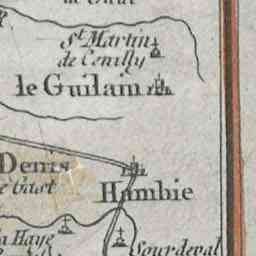 St. Martin
de Cenilly
le Guilain
Denis
le Gast
Hambie
la Haye
Sourdeval